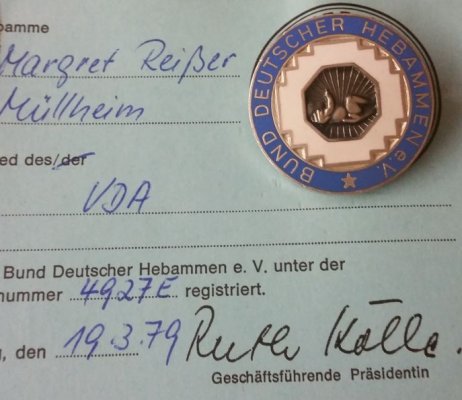 bamme
Margret Reißer
Müllheim
BUND DEUTSCHER HEBAMMEN e.V.
ied des/der
VDA
Bund Deutscher Hebammen e. V. unter der
nummer 4927E registriert.
, den 19.3.79 Ruth Kölle
Geschäftsführende Präsidentin